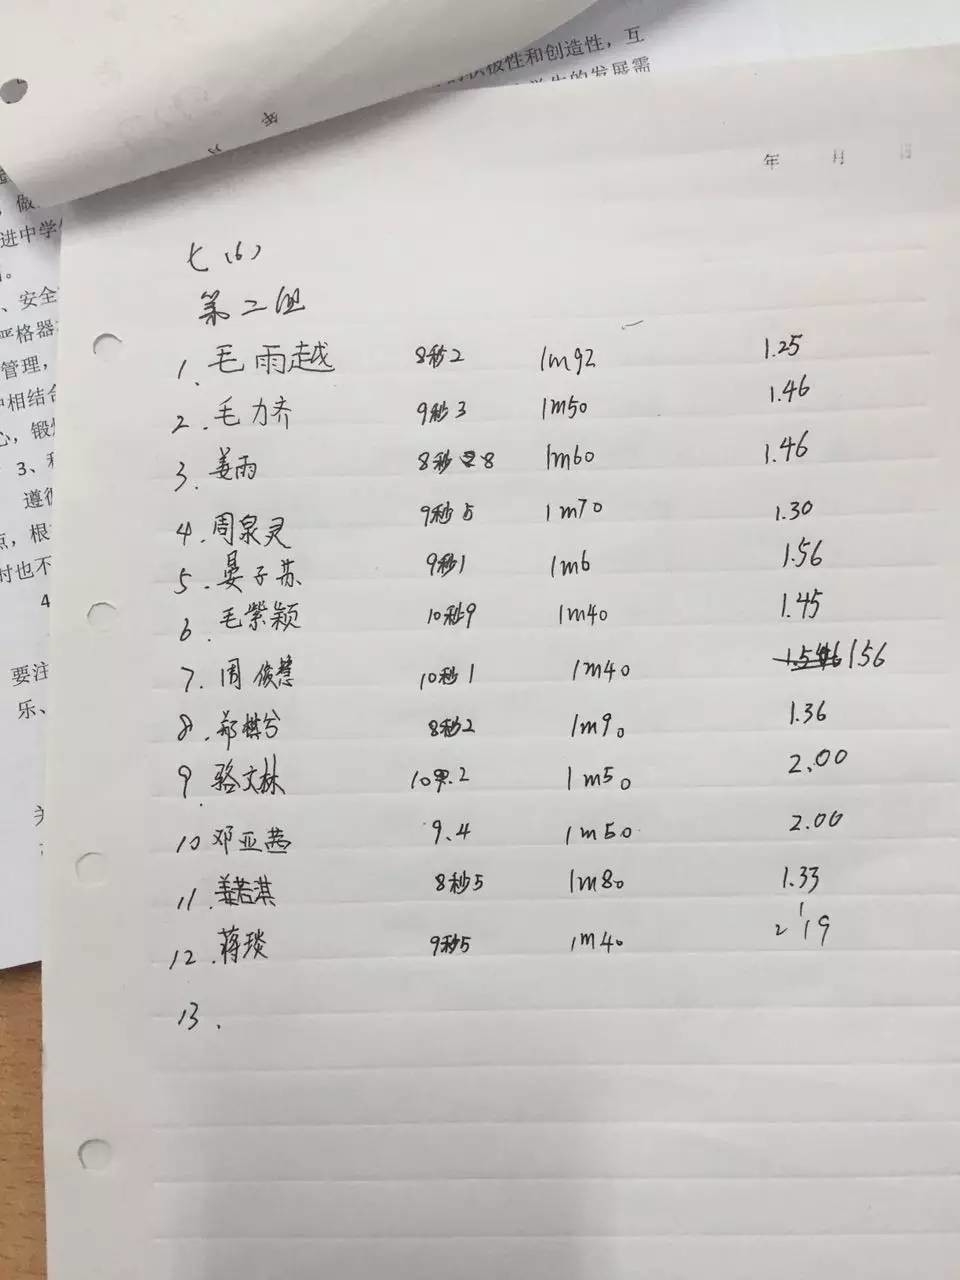 的积极性和创造性，互
学生的发展需
年 月 日
，做
进中学
、安全
严格器
管理，
中相结合
心，锻
3、
遵循
点，根
时也不
4
要注
乐、
七（6）
第二组
1. 毛雨越 8秒2 1m92 1.25
2. 毛力齐 9秒3 1m50 1.46
3. 姜雨 8秒8 1m60 1.46
4. 周泉灵 9秒5 1m70 1.30
5. 晏子苏 9秒1 1m6 1.56
6. 毛紫颖 10秒9 1m40 1.45
7. 周俊慧 10秒1 1m40 156
8. 郑棋兮 8秒2 1m90 1.36
9. 骆文林 10.2 1m50 2.00
10 邓亚茜 9.4 1m50 2.00
11. 姜若淇 8秒5 1m80 1.33
12. 蒋琰 9秒5 1m40 2'19
13.